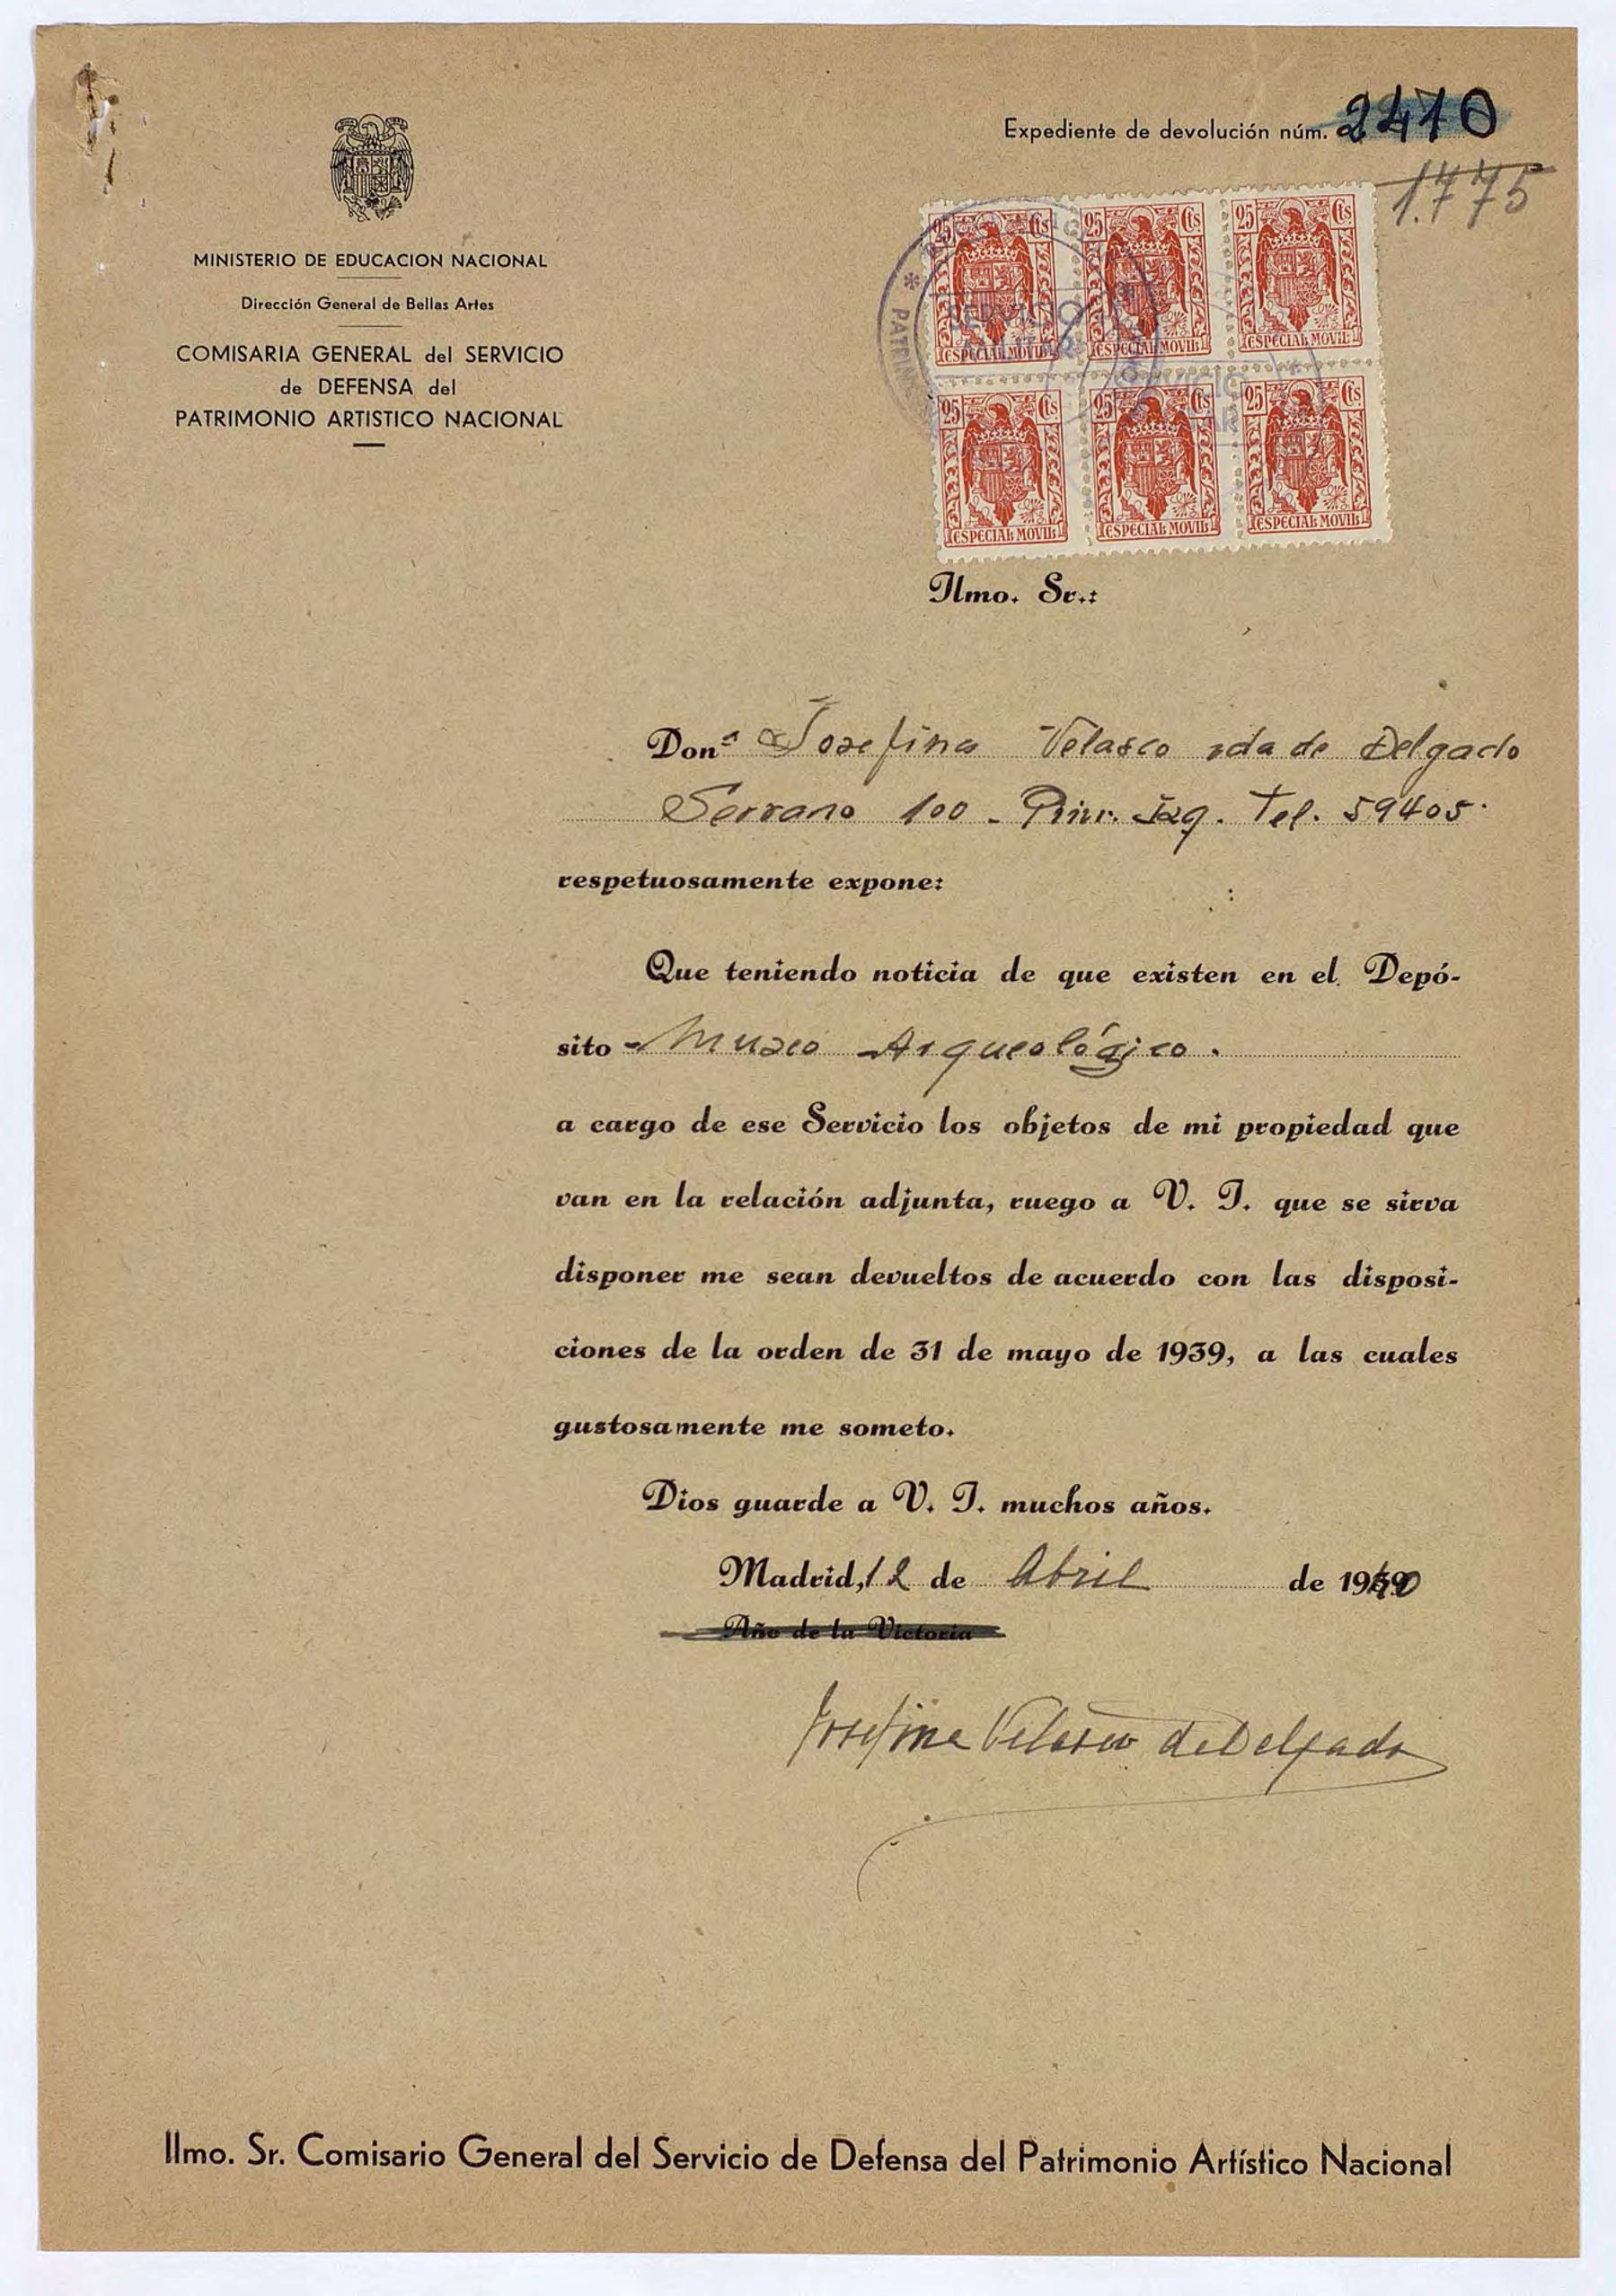 Expediente de devolución núm. 2410
1.775
MINISTERIO DE EDUCACION NACIONAL
Dirección General de Bellas Artes
COMISARIA GENERAL del SERVICIO
de DEFENSA del
PATRIMONIO ARTISTICO NACIONAL
25 Cts 25 Cts 25 Cts
ESPECIAL MOVIL ESPECIAL MOVIL ESPECIAL MOVIL
25 Cts 25 Cts 25 Cts
ESPECIAL MOVIL ESPECIAL MOVIL ESPECIAL MOVIL
SERVICIO
Ilmo. Sr.:
Donª Josefina Velasco vda de Delgado
Serrano 100 - Prin. Izq. Tel. 59405.
respetuosamente expone:
Que teniendo noticia de que existen en el Depó-
sito - Museo Arqueológico.
a cargo de ese Servicio los objetos de mi propiedad que
van en la relación adjunta, ruego a V. I. que se sirva
disponer me sean devueltos de acuerdo con las disposi-
ciones de la orden de 31 de mayo de 1939, a las cuales
gustosamente me someto.
Dios guarde a V. I. muchos años.
Madrid, 12 de Abril de 1940
Año de la Victoria
Josefina Velasco de Delgado
Ilmo. Sr. Comisario General del Servicio de Defensa del Patrimonio Artístico Nacional